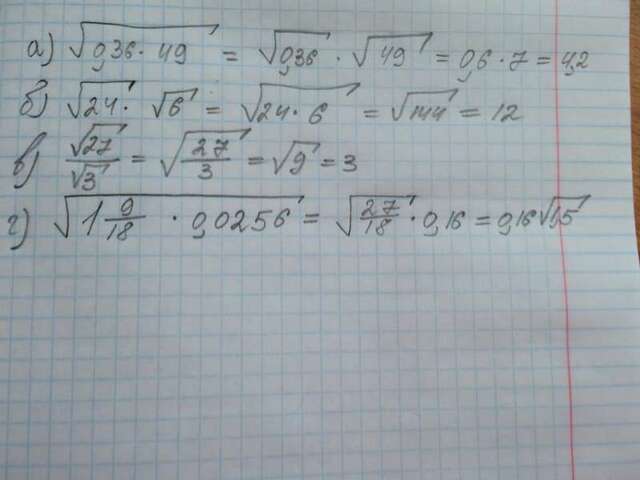 а) √0,36 · 49 = √0,36 · √49 = 0,6 · 7 = 4,2
б) √24 · √6 = √24 · 6 = √144 = 12
в) √27/√3 = √27/3 = √9 = 3
г) √1 9/18 · 0,0256 = √27/18 · 0,16 = 0,16√1,5